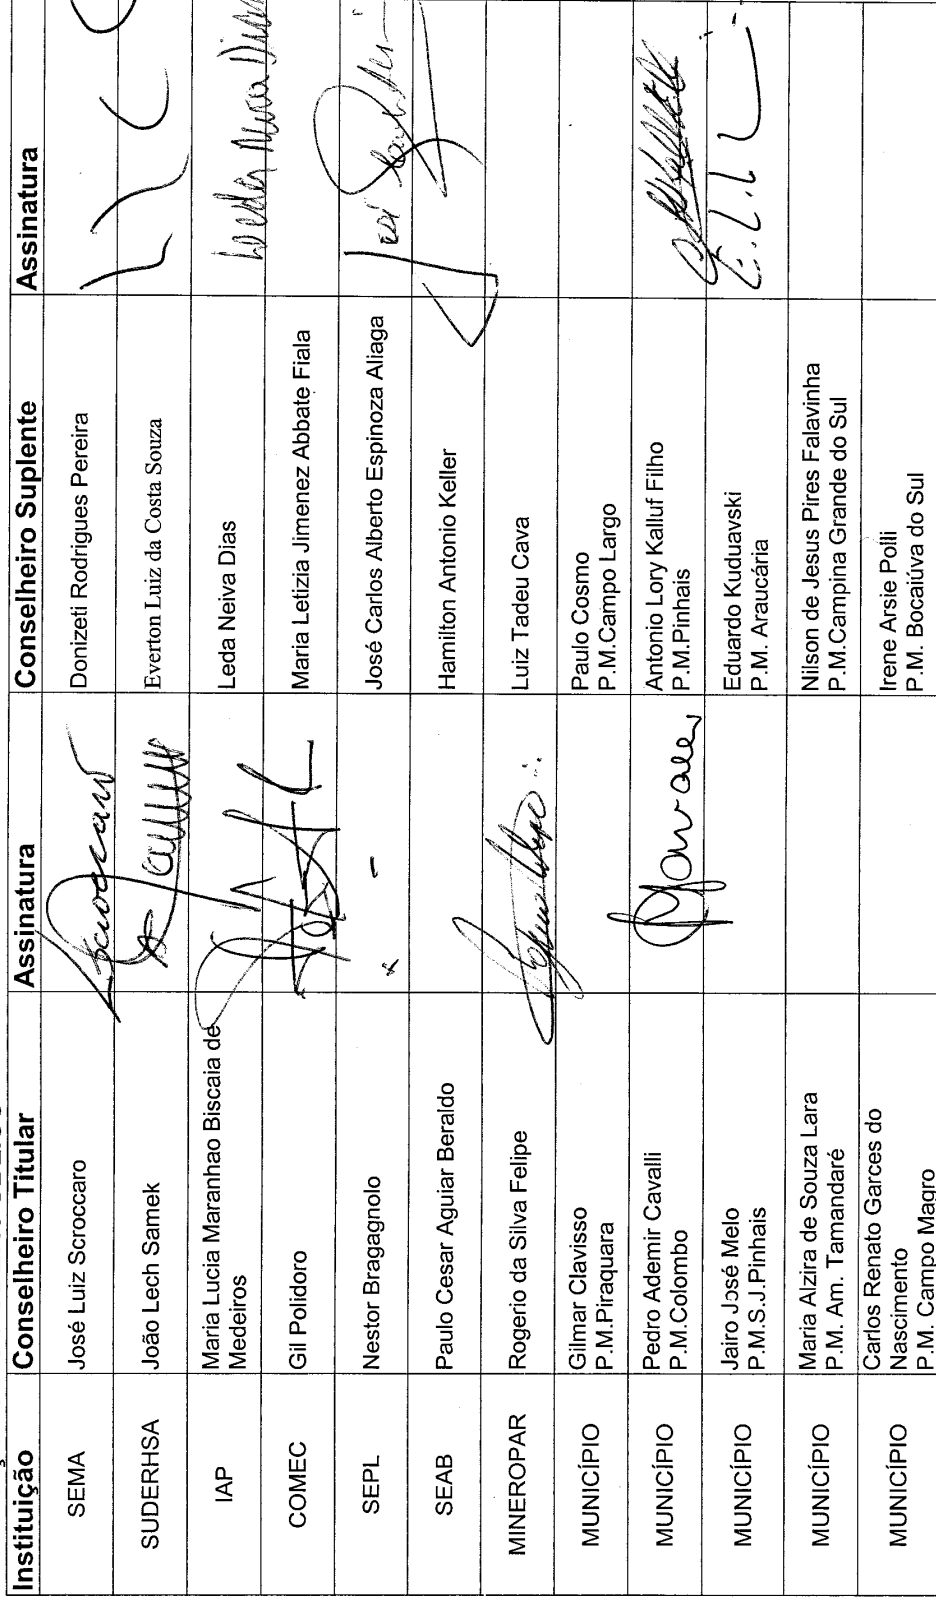 Instituição Conselheiro Titular Assinatura Conselheiro Suplente Assinatura
SEMA José Luiz Scroccaro Donizeti Rodrigues Pereira
SUDERHSA João Lech Samek Everton Luiz da Costa Souza
IAP Maria Lucia Maranhao Biscaia de
Medeiros Leda Neiva Dias Leeda Neiva Dias
COMEC Gil Polidoro Maria Letizia Jimenez Abbate Fiala
SEPL Nestor Bragagnolo José Carlos Alberto Espinoza Aliaga
SEAB Paulo Cesar Aguiar Beraldo Hamilton Antonio Keller
MINEROPAR Rogerio da Silva Felipe Luiz Tadeu Cava
MUNICÍPIO Gilmar Clavisso
P.M.Piraquara Paulo Cosmo
P.M.Campo Largo
MUNICÍPIO Pedro Ademir Cavalli
P.M.Colombo Antonio Lory Kalluf Filho
P.M.Pinhais
MUNICÍPIO Jairo José Melo
P.M.S.J.Pinhais Eduardo Kuduavski
P.M. Araucária
MUNICÍPIO Maria Alzira de Souza Lara
P.M. Am. Tamandaré Nilson de Jesus Pires Falavinha
P.M.Campina Grande do Sul
MUNICÍPIO Carlos Renato Garces do
Nascimento
P.M. Campo Magro Irene Arsie Polli
P.M. Bocaiúva do Sul